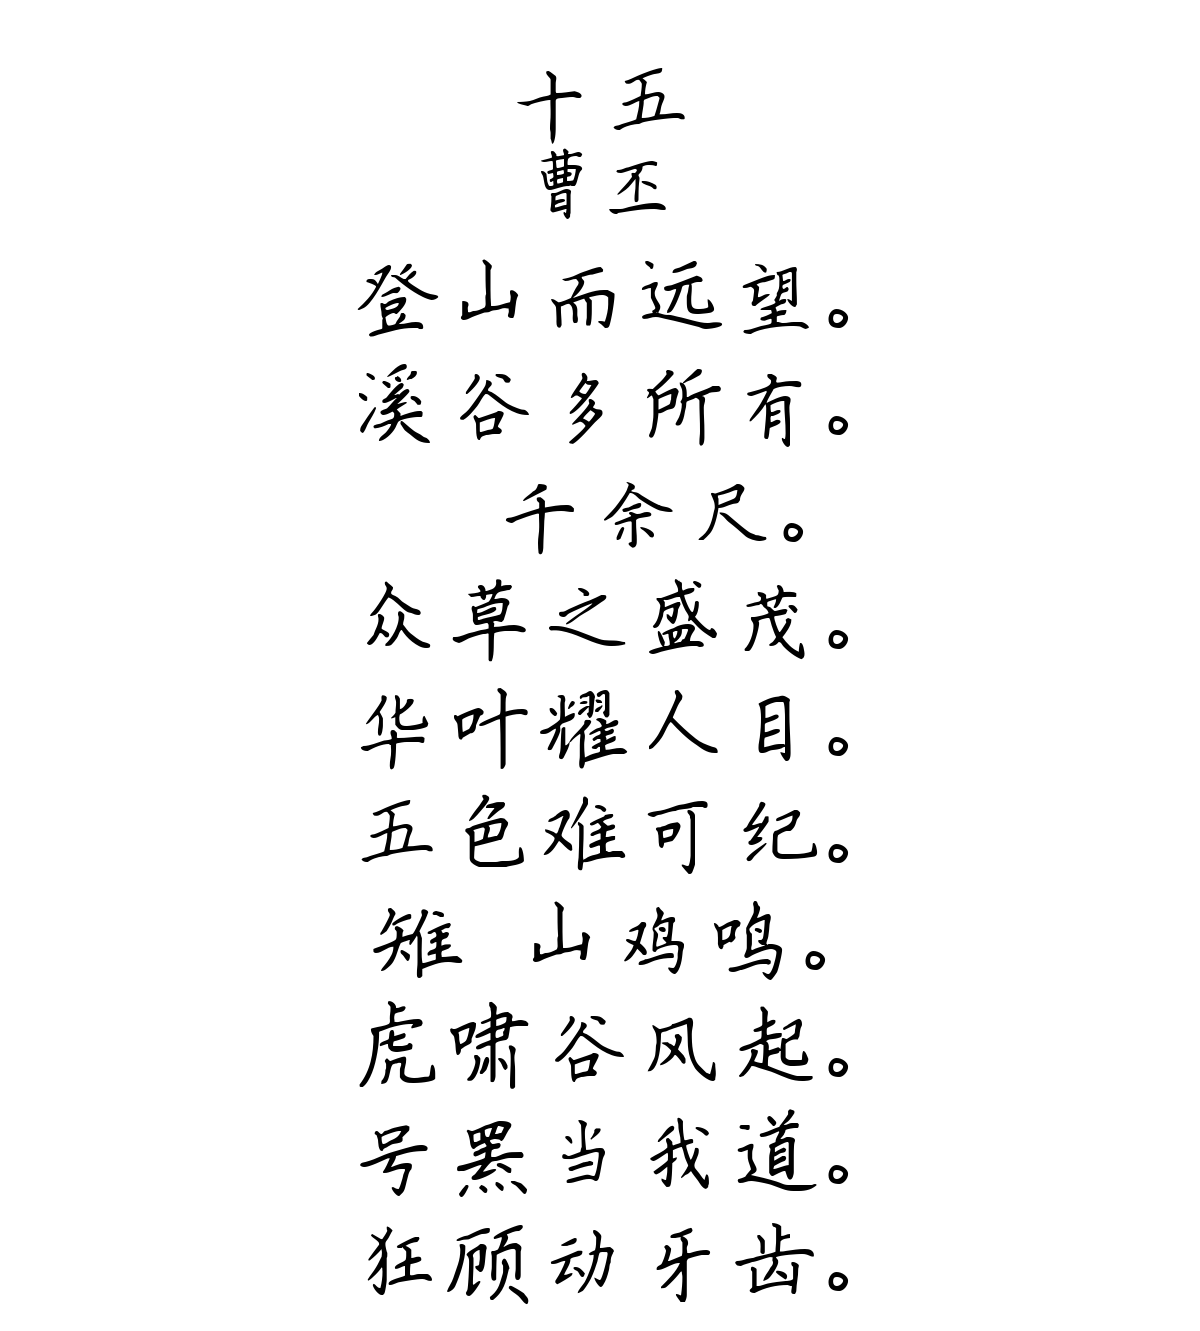 十五
曹丕
登山而远望。
溪谷多所有。
千余尺。
众草之盛茂。
华叶耀人目。
五色难可纪。
雉 山鸡鸣。
虎啸谷风起。
号罴当我道。
狂顾动牙齿。